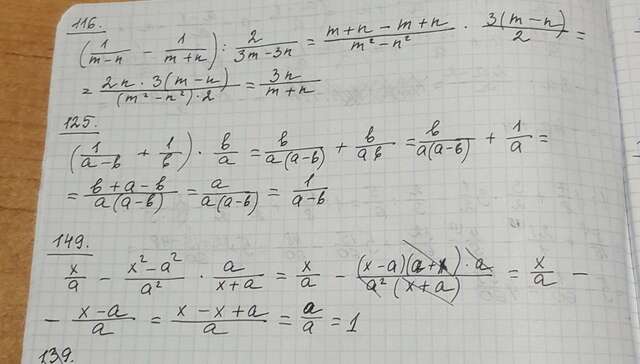 116.
(1/(m-n) - 1/(m+n)) : 2/(3m-3n) = (m+n-m+n)/(m²-n²) · 3(m-n)/2 =
= (2n · 3(m-n))/((m²-n²)·2) = 3n/(m+n)
125.
(1/(a-b) + 1/b) · b/a = b/(a(a-b)) + b/(ab) = b/(a(a-b)) + 1/a =
= (b+a-b)/(a(a-b)) = a/(a(a-b)) = 1/(a-b)
149.
x/a - (x²-a²)/a² · a/(x+a) = x/a - ((x-a)(a+x)·a)/(a²(x+a)) = x/a -
- (x-a)/a = (x-x+a)/a = a/a = 1
139.